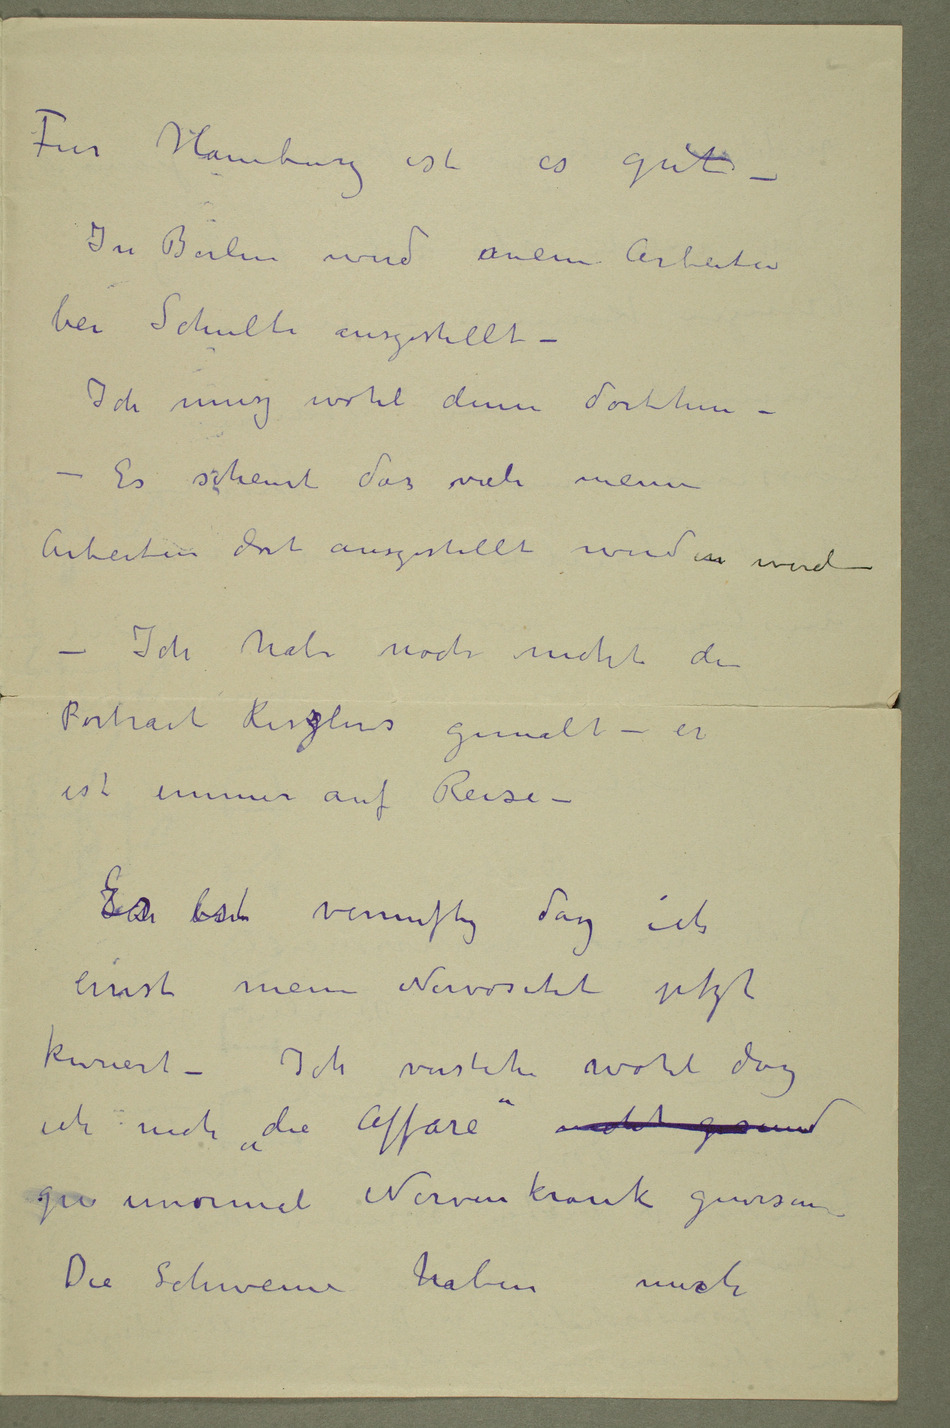 Für Hamburg ist es gut –
In Berlin wird meine Arbeiten
bei Schulte ausgestellt –
Ich musz wohl denn dorthin –
– Es scheint das viele meine
Arbeiten dort ausgestellt werden wird
– Ich habe noch nicht die
Portrait Keszlers gemalt – er
ist immer auf Reise –
Es ist vernuftig dasz ich
ernst meine Nervositet jetzt
kuriert – Ich verstehe wohl dasz
ich nach „die Affäre“ nicht gesund
unormal Nervenkrank gewesen –
Die Schweine haben mich